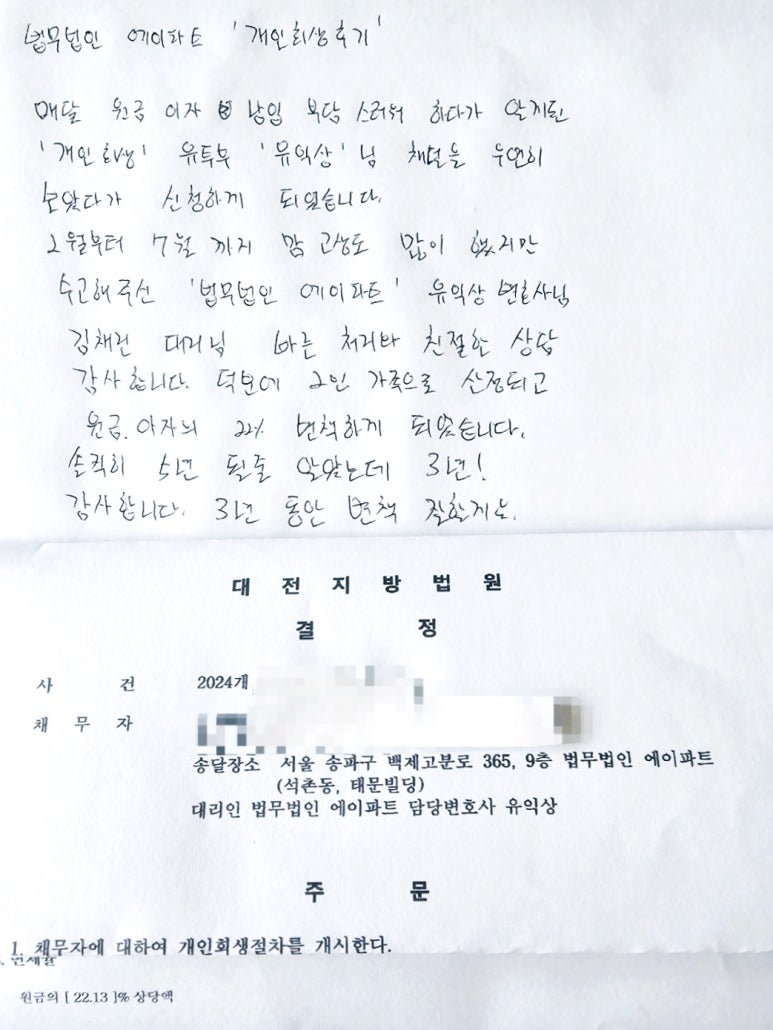 법무법인 에이파트 '개인회생후기'
매달 원금 이자 납입 부담 스러워 하다가 알게된
'개인회생' 유투부 '유익상'님 채널을 우연히
보았다가 신청하게 되었습니다.
2월부터 7월 까지 맘 고생도 많이 했지만
수고해주신 '법무법인 에이파트' 유익상 변호사님
김채린 대리님 빠른 처리와 친절한 상담
감사합니다. 덕분에 2인 가족으로 산정되고
원금.이자의 22% 변책하게 되었습니다.
솔직히 5년 될줄 알았는데 3년!
감사합니다. 3년 동안 변책 잘할게요.
대 전 지 방 법 원
결 정
사 건 2024개
채 무 자
송달장소 서울 송파구 백제고분로 365, 9층 법무법인 에이파트
(석촌동, 태문빌딩)
대리인 법무법인 에이파트 담당변호사 유익상
주 문
1. 채무자에 대하여 개인회생절차를 개시한다.
원금의 [ 22.13 ]% 상당액